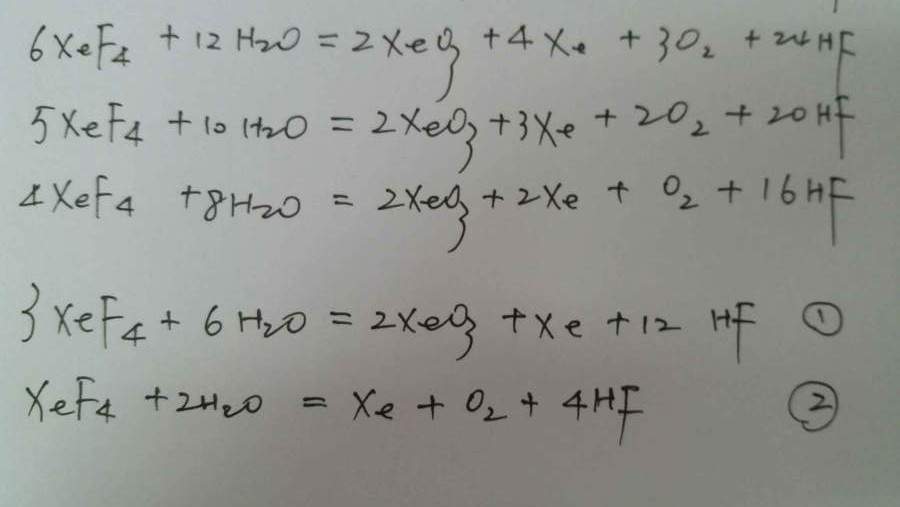 6XeF₄ + 12H₂O = 2XeO₃ + 4Xe + 3O₂ + 24HF
5XeF₄ + 10H₂O = 2XeO₃ + 3Xe + 2O₂ + 20HF
4XeF₄ + 8H₂O = 2XeO₃ + 2Xe + O₂ + 16HF
3XeF₄ + 6H₂O = 2XeO₃ + Xe + 12HF ①
XeF₄ + 2H₂O = Xe + O₂ + 4HF ②